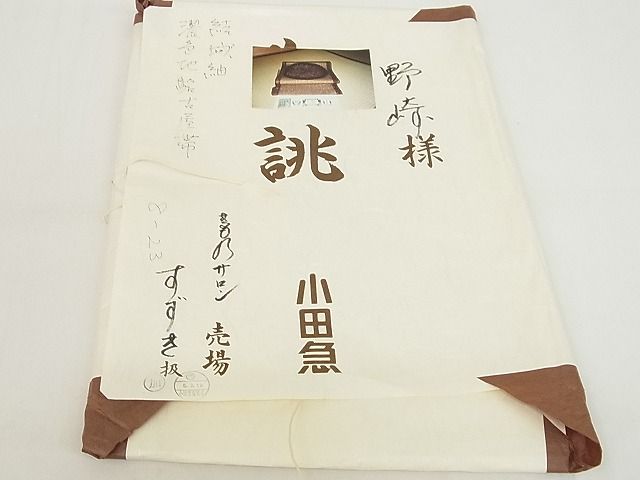 野崎様
誂
結城紬
濃色地名古屋帯
小田急
きものサロン 売場
すずき扱
2-23